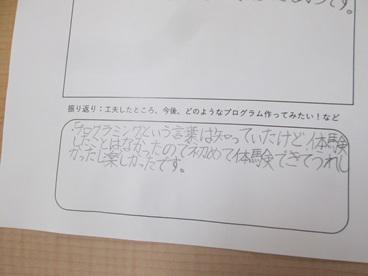 振り返り：工夫したところ、今後、どのようなプログラム作ってみたい！など
プログラミングという言葉は知っていたけど体験
したことはなかったので初めて体験できてうれし
かったし楽しかったです。